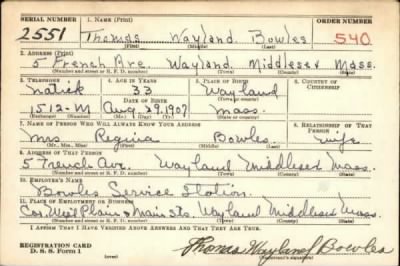 SERIAL NUMBER 1. NAME (Print) ORDER NUMBER
2551 Thomas Wayland Bowles 540
(First) (Middle) (Last)
2. ADDRESS (Print)
5 French Ave. Wayland Middlesex Mass.
(Number and street or R. F. D. number) (Town) (County) (State)
3. TELEPHONE 4. AGE IN YEARS 5. PLACE OF BIRTH 6. COUNTRY OF CITIZENSHIP
Natick 33 Wayland
DATE OF BIRTH (Town or county)
1512-M Aug 29, 1907 Mass.
(Exchange) (Number) (Mo.) (Day) (Yr.) (State or country)
7. NAME OF PERSON WHO WILL ALWAYS KNOW YOUR ADDRESS 8. RELATIONSHIP OF THAT PERSON
Mrs Regina Bowles wife
(Mr., Mrs., Miss) (First) (Middle) (Last)
9. ADDRESS OF THAT PERSON
5 French Ave. Wayland Middlesex Mass.
(Number and street or R. F. D. number) (Town) (County) (State)
10. EMPLOYER'S NAME
Bowles Service Station.
11. PLACE OF EMPLOYMENT OR BUSINESS
Cor West Plain & Main Sts. Wayland Middlesex Mass.
(Number and street or R. F. D. number) (Town) (County) (State)
I AFFIRM THAT I HAVE VERIFIED ABOVE ANSWERS AND THAT THEY ARE TRUE.
REGISTRATION CARD
D. S. S. Form 1 Thomas Wayland Bowles
(Registrant's signature)